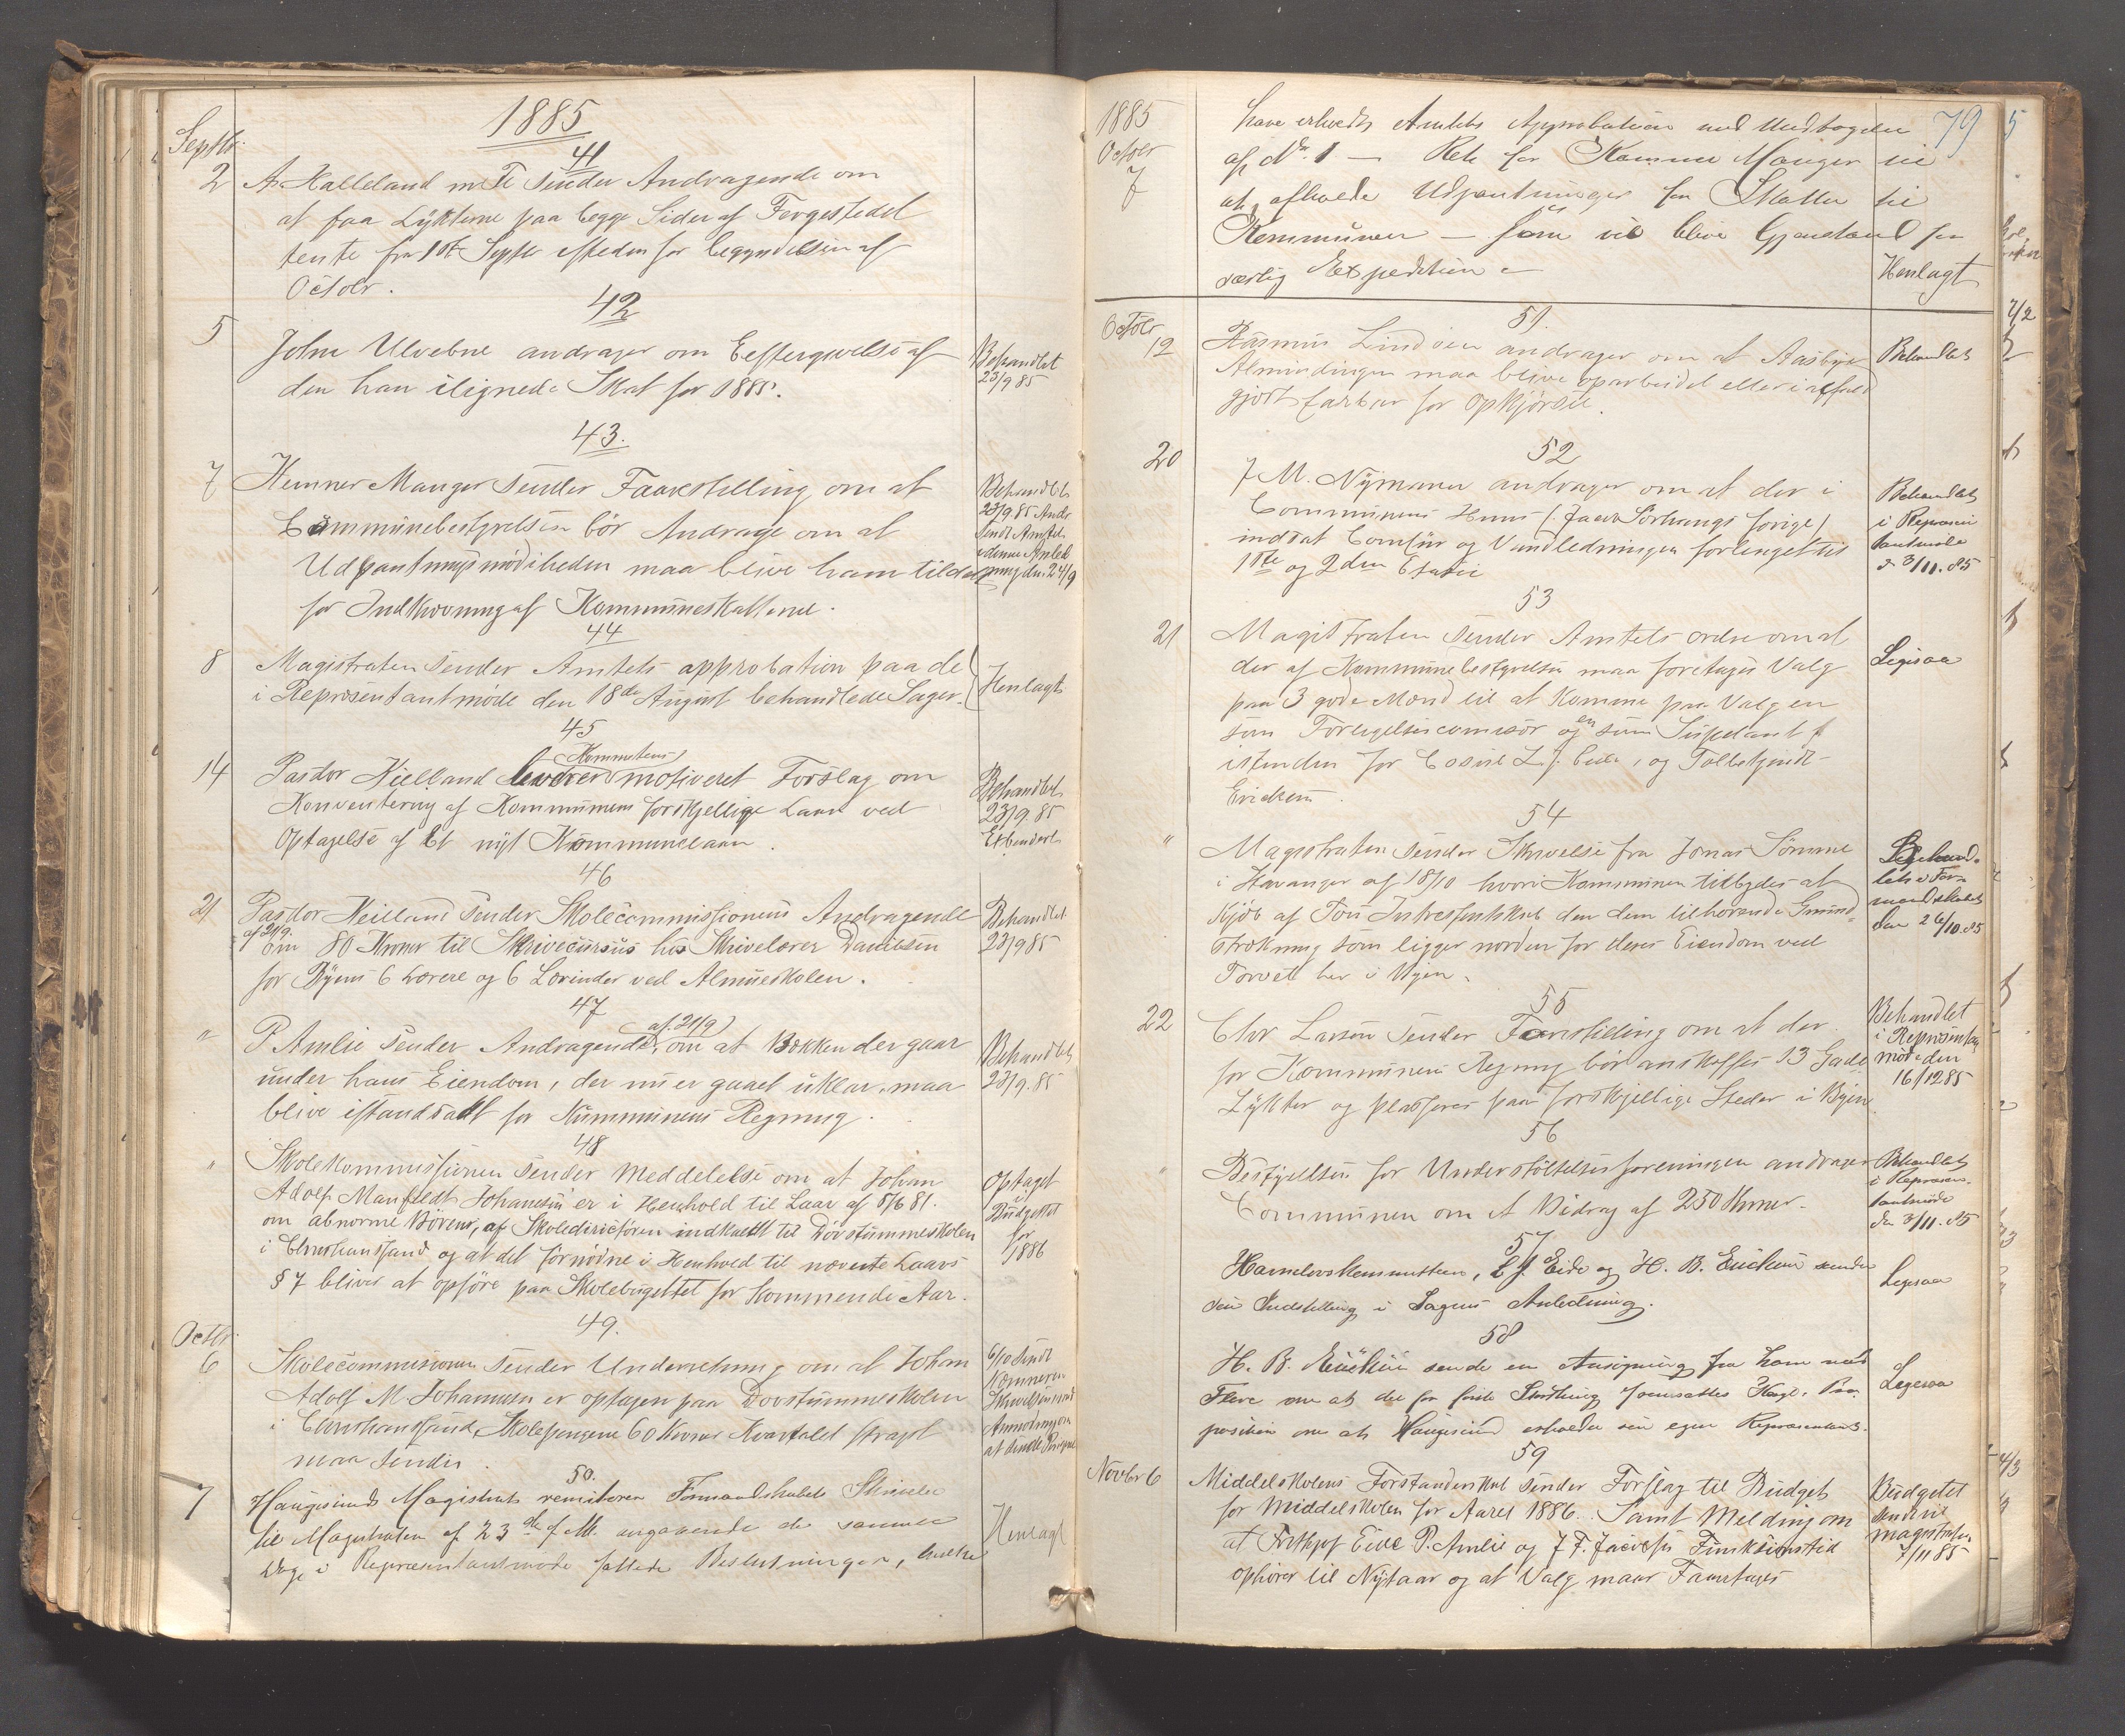 1885
Septbr.
41
2 A. Kalleland m Fl sender Andragende om
at faa Lykterne paa begge Sider af Færgestedet
tente fra 1st Septbr istedenfor begyndelsen af
Octobr.
42
5 John Ulvebne andrager om Eeftergivelse af
den han ilignede Skat for 1885.
Behandlet
23/9 85
43.
7 Kemner Manger sender Faarestilling om at
Communebestyrelsen bör Andrage om at
Udpantningsmödiheden maa blive ham tildelt
for Indkrævning af Kommuneskatterne.
Behandlet
23/9 85 Andr
Sendt Amtet
i denne Anled
ning den 24/9
44
8 Magistraten sender Amtets approbation paa de
i Repræsentantmöde den 18de August behandlede Sager.
Henlagt
45
14 Pastor Kielland leverer Kommiteens motiveret Forslag om
Konventering af Kommunens forskjellige Laan ved
Optagelse af Et nyt Kommunelaan.
Behandlet
23/9. 85
Exbenderet
46
21 Pastor Keilland sender Skolecommissionens Andragende
af 21/9.
om 80 Kroner til Skrivecursus hos Skrivelærer Danielsen
for Byens 6 Lærere og 6 Lærinder ved Almueskolen.
Behandlet
23/9 85
47
" P. Amlie sender Andragende af. 21/9 om at Bækken der gaar
under hans Eiendom, der nu er gaaet uklar, maa
blive istandsatt for Kummunens Regning.
Behandlet
23/9. 85
48
" Skolekommissionen sender Meddelelse om at Johan
Adolf Manfeldt Johansen er i Henhold til Laav af 8/6 81.
om abnorme Börene, af Skoledirectören indkaldt til Dövstummeskolen
i Christiansand og at det fornödne i Henhold til nævnte Laavs
§ 7 bliver at opföre paa Skolebugettet for Kommende Aar.
Optaget
i
Budgettet
for
1886
49.
Octbr.
6 Skolecommissionen sender Underretning om at Johan
Adolf M. Johannsen er optagen paa Dövstummeskolen
i Christiansand, Skolepengene 60 Kroner Kvartalet strags
maa sendes.
6/10 Sendt
Kæmneren
Skrivelsen med
Anmodning om
at sende Pengene
50.
7 Haugesunds Magistrat remiterer Formandskabets Skrivelse
til Magistraten af 23de f. M. angaaende de samme
Dage i Repræsentantmöde fattede Beslutninger, hvilke
Henlagt
79
1885
Octobr
7
have erholdt Amtets Approbation med Undtagelse
af No. 1 — Ret for Kæmner Manger til
at afholde Udpantninger for Skatter til
Kommunen — som vil blive Gjenstand for
særlig Expedition.—
Henlagt
Octobr
51.
12 Rasmus Lindöen andrager om at Aasbye
Almindingen maa blive oparbeidet eller ialfald
gjort farbar for Opkjörsel.
Behandlet
52
20 J. M. Nymann andrager om at der i
Communens Huus (: Jacob Sörhaugs forige)
indsat Comfür og Vandledningen forlenget til
1ste og 2den Etasie
Behandlet
i Repræsen
tantmöde
d 3/11. 85
53
21 Magistraten sender Amtets ordre om at
der af Kommunebestyrelsen maa foretages Valg
paa 3 gode Mænd til at Komme paa Valg en
som Forligelsescomisær og en som Supleant
istenden for Cosul L. J. Eide, og Tollbetjendt
Erichsen.
Legisaa
54
" Magistraten sender Skrivelse fra Jonas Sömme
i Stavanger af 18/10 hvori Kommunen tilbydes at
Kjöb af Tou Intressentskab den dem tilhörende Grund=
strækning som ligger norden for deres Eiendom ved
Torvet her i Byen.
Behand-
let i For-
mandskabet
den 26/10. 85
55
22 Chr Larsen sender Forestilling om at der
for Kommunens Regning bör anskaffes 23 Gade
Lykter og plasseres paa forskjellige Steder i Byen
Behandlet
i Repræsentant
möde den
16/12 85
56
" Bestyrelsen for Understöttelsesforeningen andrager
Communen om et Bidrag af 250 Kroner.
Behandlet
i Repræsen-
tantmöde
den 3/11. 85
57
Havnekommiteen, L. J. Eide og H. B. Erichsen sender
sin Indstilling i Sagens Anledning.
Legesaa
58
H. B. Erichsen sende en Ansögning fra ham med
Flere om at det for första Storthing fremsættes Kngl. Pro
posision om at Haugesund erholder sin egen Repræsentant.
Legesaa
59
Novbr 6 Middelskolens Forstanderskab sender Forslag til Budget
for Middelskolen for Aaret 1886. Samt Melding om
at Frithjof Eide P. Amlie og J. F. Jacobsens Funksionstid
ophörer til Nytaar og at Valg maar Faaretages
Budgetet
sendt til
magistraten
7/11 85